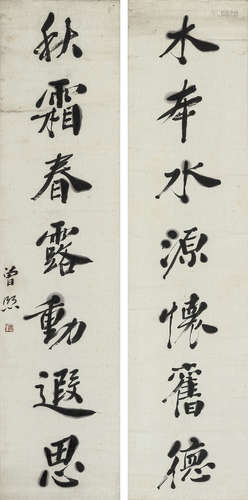 木本水源懷舊德
秋霜春露動遐思
曾熙